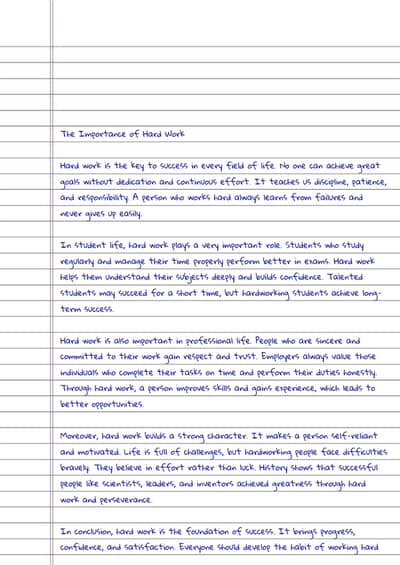 The Importance of Hard Work
Hard work is the key to success in every field of life. No one can achieve great
goals without dedication and continuous effort. It teaches us discipline, patience,
and responsibility. A person who works hard always learns from failures and
never gives up easily.
In student life, hard work plays a very important role. Students who study
regularly and manage their time properly perform better in exams. Hard work
helps them understand their subjects deeply and builds confidence. Talented
students may succeed for a short time, but hardworking students achieve long-
term success.
Hard work is also important in professional life. People who are sincere and
committed to their work gain respect and trust. Employers always value those
individuals who complete their tasks on time and perform their duties honestly.
Through hard work, a person improves skills and gains experience, which leads to
better opportunities.
Moreover, hard work builds a strong character. It makes a person self-reliant
and motivated. Life is full of challenges, but hardworking people face difficulties
bravely. They believe in effort rather than luck. History shows that successful
people like scientists, leaders, and inventors achieved greatness through hard
work and perseverance.
In conclusion, hard work is the foundation of success. It brings progress,
confidence, and satisfaction. Everyone should develop the habit of working hard